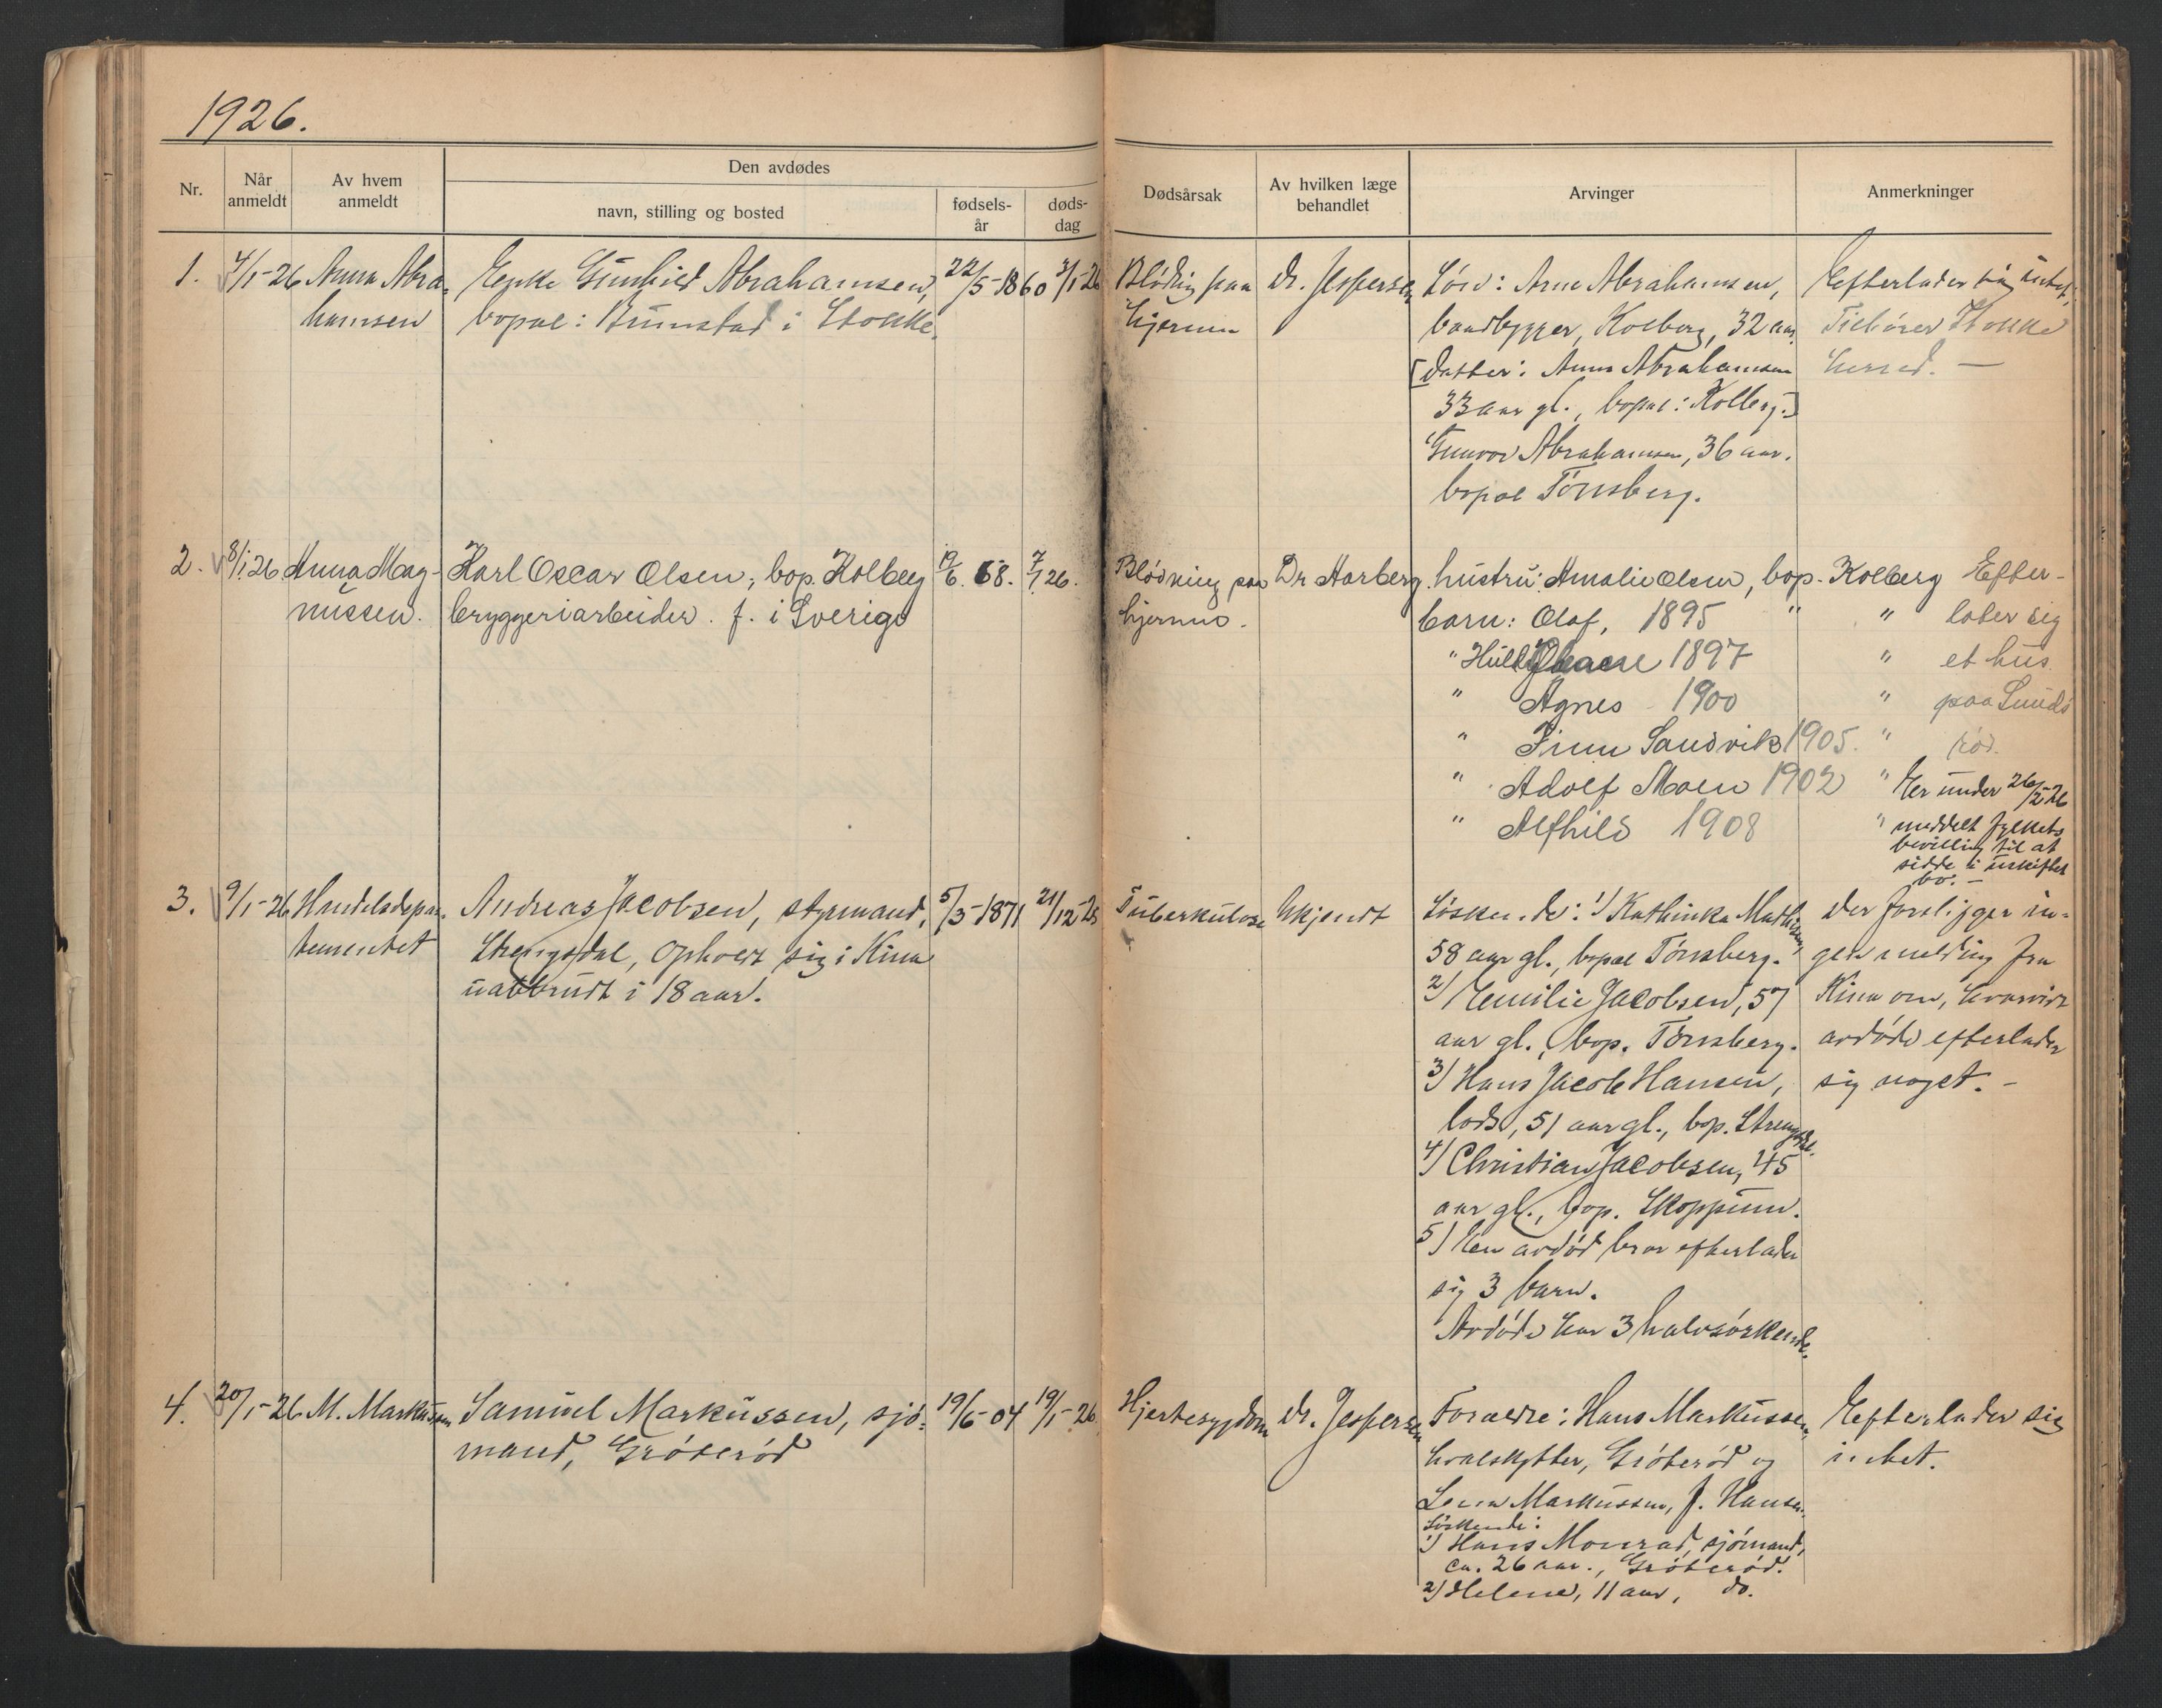 1926.
Nr.
Når anmeldt
Av hvem anmeldt
Den avdødes
navn, stilling og bosted
fødsels-
år
døds-
dag
Dødsårsak
Av hvilken læge behandlet
Arvinger
Anmerkninger
1.
4/1-26
Anna Abra-
hamsen
Enke Gunhild Abrahamsen,
bopæl: Brunstad i Stokke.
22/5-1860
3/1-26
Blødning paa
hjernen
Dr. Jespersen
Søn: Arne Abrahamsen,
baadbygger, Kolberg, 32 aar.
[Datter: Anna Abrahamsen
33 aar gl., bopæl: Kolberg.]
Gunvor Abrahamsen, 36 aar.
bopæl Tønsberg.
Efterlader sig intet.
Tilhører Stokke
herred. —
2.
8/1 26
Anna Mag-
nussen.
Karl Oscar Olsen, bop. Kolberg
bryggeriarbeider. f. i Sverige
19/6. 68.
7/1 26.
Blødning paa
hjernen.
Dr Aarberg.
hustru: Amalie Olsen, bop. Kolberg
barn: Olaf, 1895 " "
" 1897 "
" Agnes 1900 "
" Finn Sandvik 1905. "
" Adolf Moen 1902 "
" Alfhild 1908 "
Efter-
later sig
et hus
paa Sunds
rød.
Er under 26/2-26
meddelt fylkets
bevilling til at
sidde i uskiftet
bo. —
3.
9/1-26
Handelsdepar-
tementet
Andreas Jacobsen, styrmand,
Strengsdal, opholdt sig i Kina
uavbrudt i 18 aar.
5/3-1871
21/12-25
Tuberkulose
Ukjendt
Søskende: 1) Kathinka Mathisen,
58 aar gl., bopæl Tønsberg.
2) Emilie Jacobsen, 57
aar gl., bop. Tønsberg.
3) Hans Jacob Hansen,
lods, 51 aar gl., bop. Strengsdal.
4) Christian Jacobsen, 45
aar gl., bop. Skoppum.
5) En avdød bror efterlader
sig 3 barn.
Avdøde har 3 halvsøskende.
Der foreligger in-
gen melding fra
Kina om, hvorvidt
avdøde efterlader
sig noget. —
4.
20/1-26
M. Markussen
Samuel Markussen, sjø-
mand, Grøterød
19/6-04
19/1-26
Hjertesygdom
Dr. Jespersen
Forældre: Hans Markussen,
hvalskytter, Grøterød og
Lena Markussen, f. Hansen.
Søskende:
1) Hans Monrad, sjømand,
ca. 26 aar., Grøterød.
2) Helene, 11 aar, do.
Efterlader sig
intet.